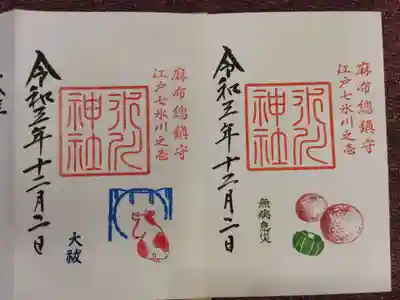 麻布總鎮守
江戸七氷川之壱
氷川神社
令和三年十二月二日
無病息災
麻布總鎮守
江戸七氷川之壱
氷川神社
令和三年十二月二日
大祓